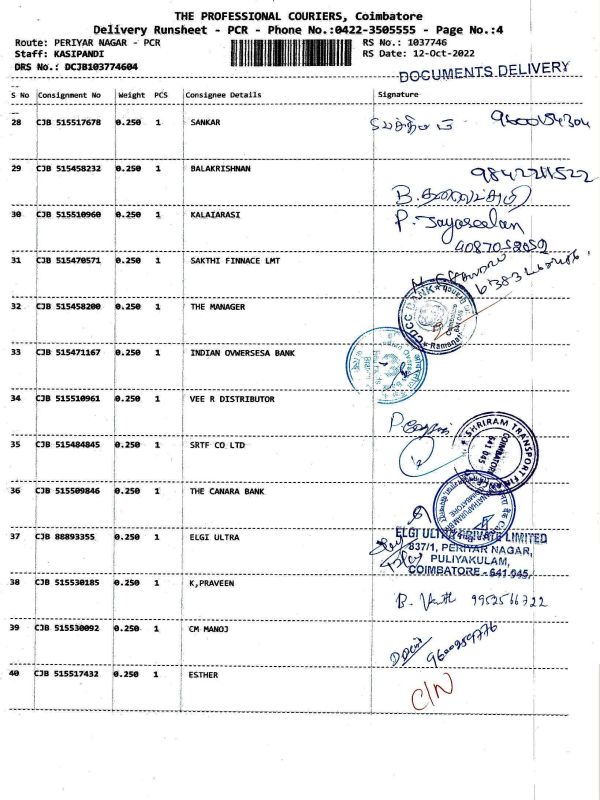 THE PROFESSIONAL COURIERS, Coimbatore
Delivery Runsheet - PCR - Phone No.:0422-3505555 - Page No.:4
Route: PERIYAR NAGAR - PCR
RS No.: 1037746
Staff: KASIPANDI
RS Date: 12-Oct-2022
DRS No.: DCJB103774604
DOCUMENTS DELIVERY
S No Consignment No Weight PCS Consignee Details Signature
28 CJB 515517678 0.250 1 SANKAR
29 CJB 515458232 0.250 1 BALAKRISHNAN
30 CJB 515510960 0.250 1 KALAIARASI P. Jayaseelan
31 CJB 515470571 0.250 1 SAKTHI FINNACE LMT
32 CJB 515458200 0.250 1 THE MANAGER
33 CJB 515471167 0.250 1 INDIAN OVWERSESA BANK
34 CJB 515510961 0.250 1 VEE R DISTRIBUTOR
35 CJB 515484845 0.250 1 SRTF CO LTD
SHRIRAM TRANSPORT FIN
COIMBATORE
641 045
36 CJB 515509846 0.250 1 THE CANARA BANK
37 CJB 88893355 0.250 1 ELGI ULTRA
ELGI ULTRA PRIVATE LIMITED
837/1, PERIYAR NAGAR,
PULIYAKULAM,
COIMBATORE - 641 045.
38 CJB 515530185 0.250 1 K,PRAVEEN 9952566722
39 CJB 515530092 0.250 1 CM MANOJ
40 CJB 515517432 0.250 1 ESTHER C/N